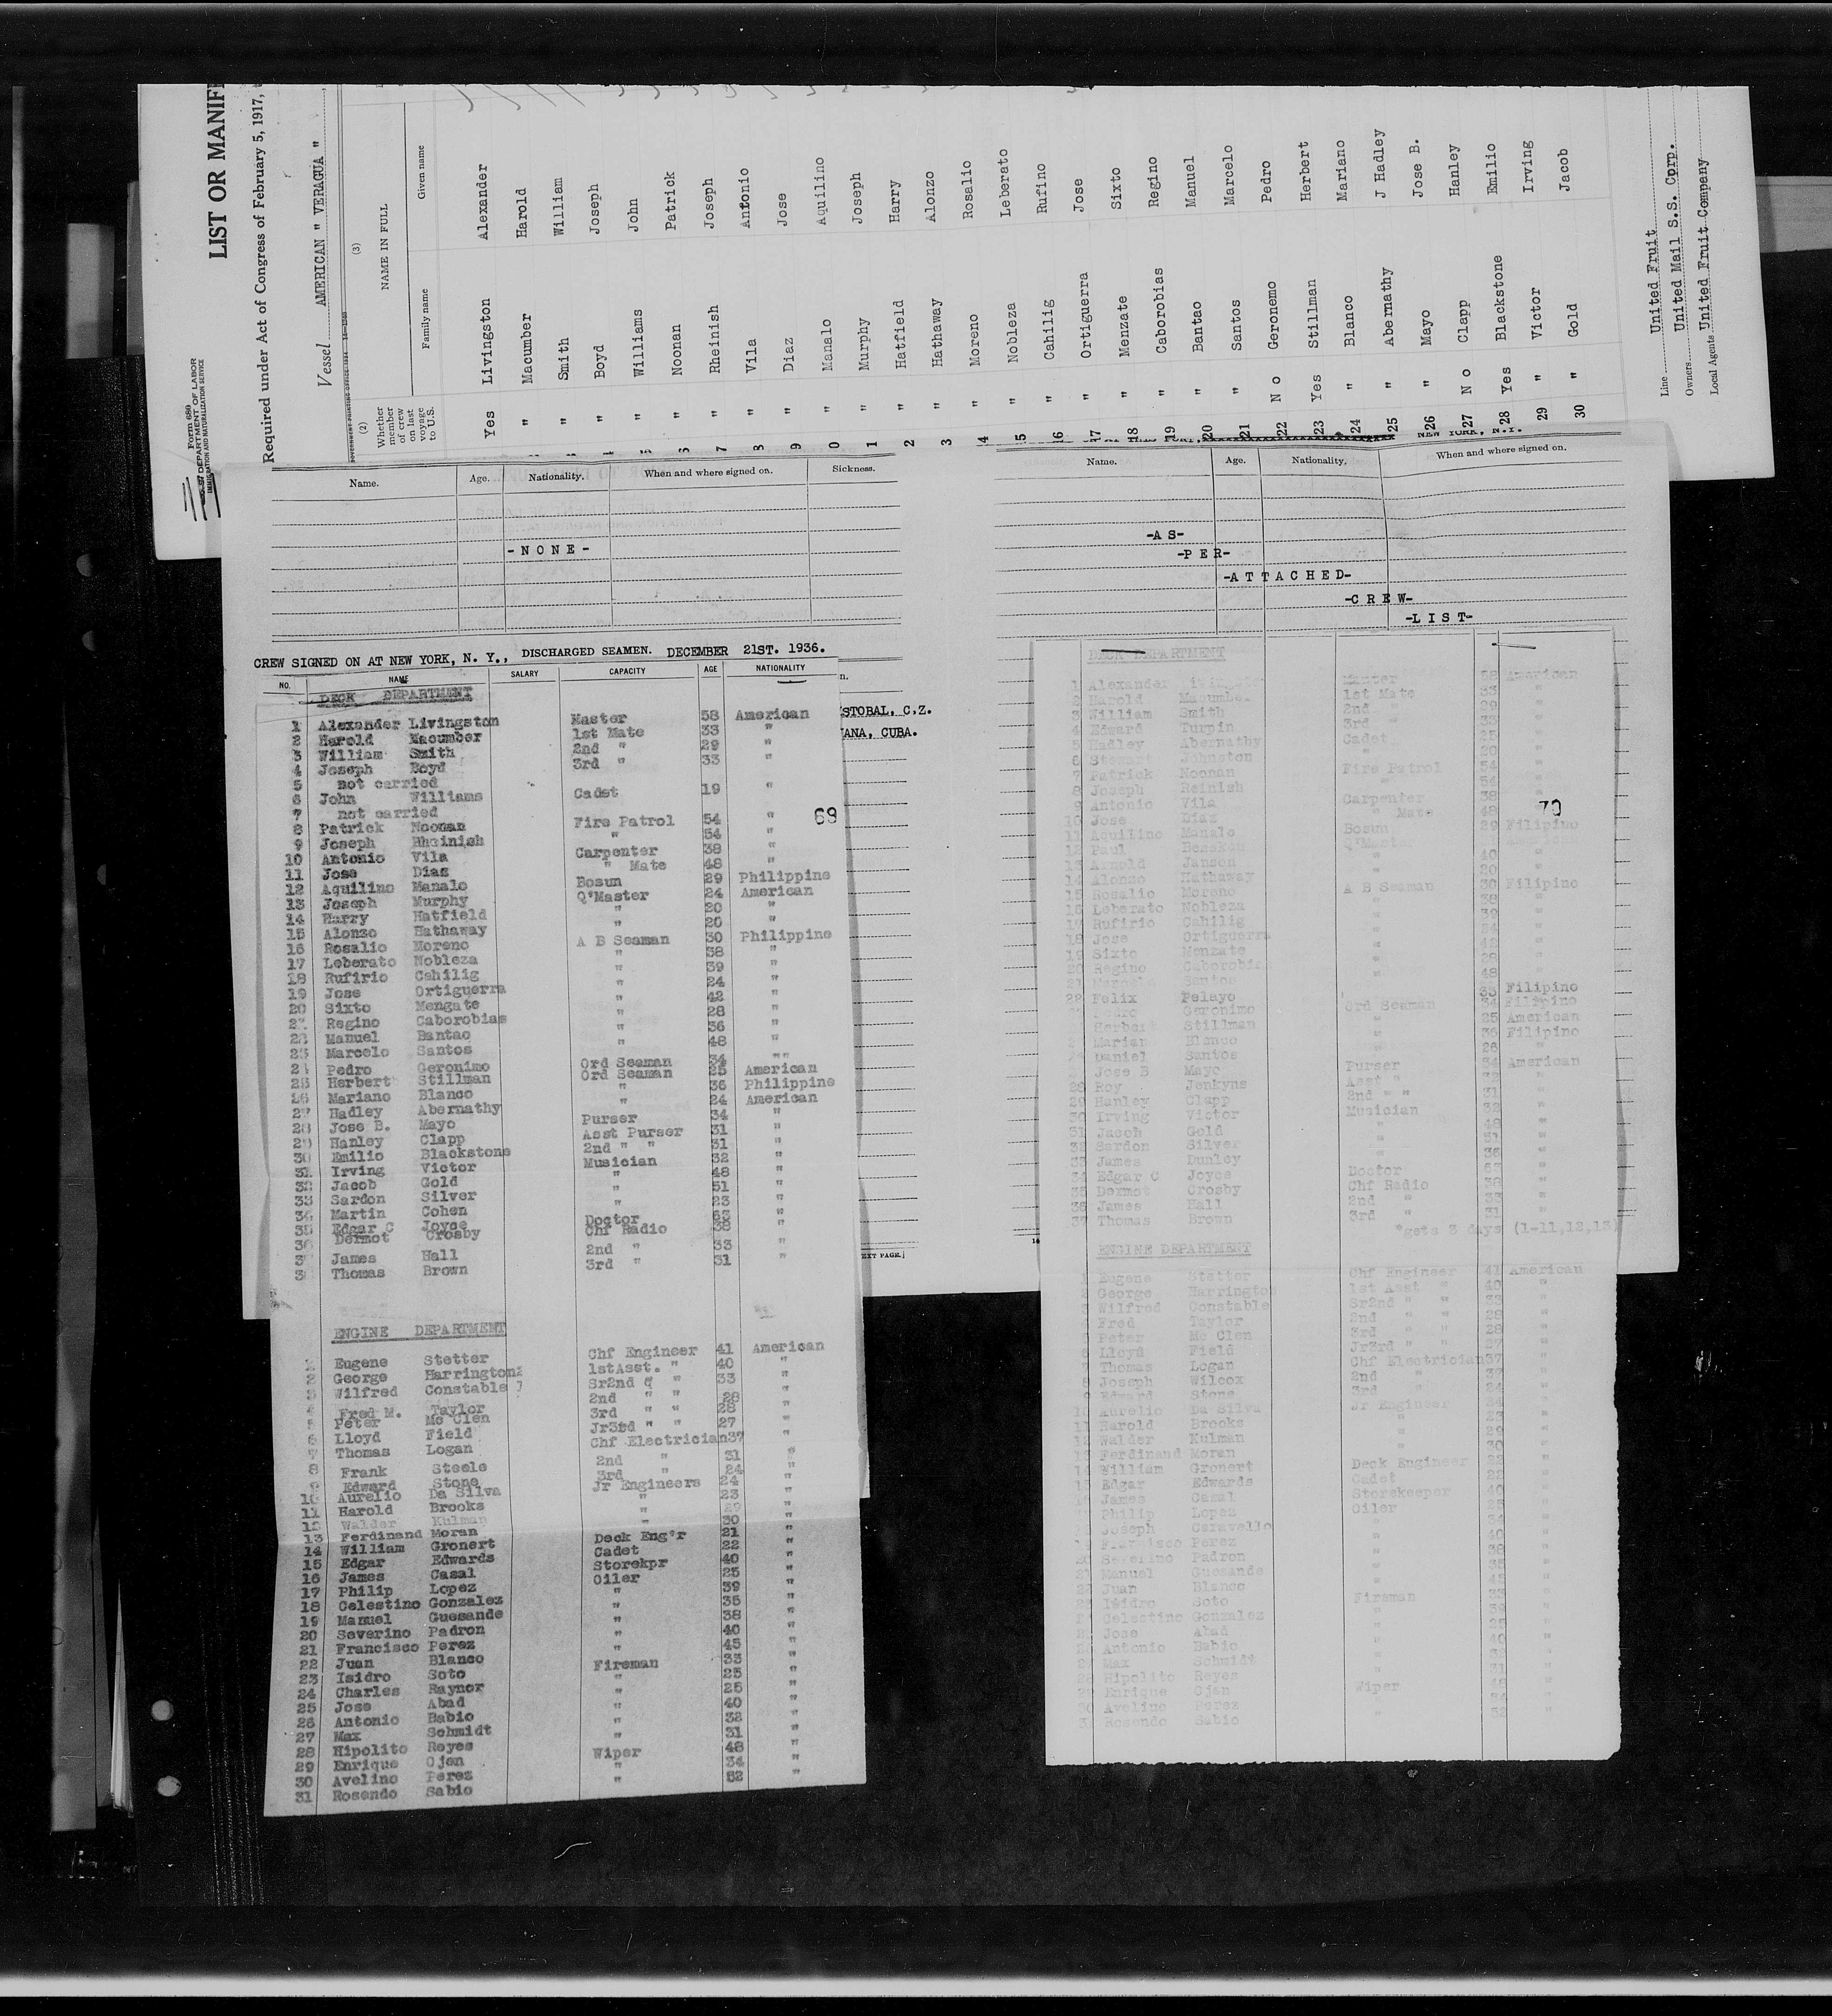 Form 689
U. S. DEPARTMENT OF LABOR
IMMIGRATION AND NATURALIZATION SERVICE
LIST OR MANIF
Required under Act of Congress of February 5, 1917,
Vessel AMERICAN " VERAGUA "
(2) (3)
Whether member of crew on last voyage to U.S. NAME IN FULL
Family name Given name
Yes Livingston Alexander
" Macumber Harold
" Smith William
" Boyd Joseph
5 " Williams John
6 " Noonan Patrick
7 " Rheinish Joseph
8 " Vila Antonio
9 " Diaz Jose
0 " Manalo Aquilino
1 " Murphy Joseph
2 " Hatfield Harry
3 " Hathaway Alonzo
4 " Moreno Rosalio
5 " Nobleza Leberato
16 " Cahilig Rufino
17 " Ortiguerra Jose
18 " Menzate Sixto
19 " Caborobias Regino
20 " Bantao Manuel
21 " Santos Marcelo
22 N o Geronemo Pedro
23 Yes Stillman Herbert
24 " Blanco Mariano
25 " Abernathy J Hadley
26 " Mayo Jose B.
27 N o Clapp Hanley
28 Yes Blackstone Emilio
29 " Victor Irving
30 " Gold Jacob
Line United Fruit
Owners United Mail S.S. Corp.
Local Agents United Fruit Company
Name. Age. Nationality. When and where signed on. Sickness.
-NONE-
NEW YORK, N.Y.
Name. Age. Nationality. When and where signed on.
-AS-
-PER-
-ATTACHED-
-CREW-
-LIST-
STOBAL, C.Z.
ANA, CUBA.
EXT PAGE.]
CREW SIGNED ON AT NEW YORK, N. Y., DISCHARGED SEAMEN. DECEMBER 21ST. 1936.
NO. NAME SALARY CAPACITY AGE NATIONALITY
DECK DEPARTMENT
1 Alexander Livingston Master 58 American
2 Harold Macumber 1st Mate 33 "
3 William Smith 2nd " 29 "
4 Joseph Boyd 3rd " 33 "
5 not carried
6 John Williams Cadet 19 "
7 not carried
8 Patrick Noonan Fire Patrol 54 "
9 Joseph Rheinish " 54 "
10 Antonio Vila Carpenter 38 "
11 Jose Diaz " Mate 48 "
12 Aquilino Manalo Bosun 29 Philippine
13 Joseph Murphy Q'Master 24 American
14 Harry Hatfield " 20 "
15 Alonzo Hathaway " 20 "
16 Rosalio Moreno A B Seaman 30 Philippine
17 Leberato Nobleza " 38 "
18 Rufirio Cahilig " 39 "
19 Jose Ortiguerra " 24 "
20 Sixto Mengate " 42 "
21 Regino Caborobias " 28 "
22 Manuel Bantao " 36 "
23 Marcelo Santos " 48 "
24 Pedro Geronimo Ord Seaman 34 ""
25 Herbert Stillman Ord Seaman 25 American
26 Mariano Blanco " 36 Philippine
27 Hadley Abernathy " 24 American
28 Jose B. Mayo Purser 34 "
29 Hanley Clapp Asst Purser 31 "
30 Emilio Blackstone 2nd " " 31 "
31 Irving Victor Musician 32 "
32 Jacob Gold " 48 "
33 Sardon Silver " 51 "
34 Martin Cohen " 23 "
35 Edgar C Joyce Doctor 63 "
36 Dermot Crosby Chf Radio 38
37 James Hall 2nd " 33 "
3 Thomas Brown 3rd " 31 "
69
ENGINE DEPARTMENT
1 Eugene Stetter Chf Engineer 41 American
2 George Harrington 1stAsst. " 40 "
3 Wilfred Constable Sr2nd " " 33 "
4 Fred M. Taylor 2nd " " 28 "
5 Peter Mc Clen 3rd " " 28 "
6 Lloyd Field Jr3rd " " 27 "
7 Thomas Logan Chf Electrician37 "
8 Frank Steele 2nd " 31 "
9 Edward Stone 3rd " 24 "
10 Aurelio Da Silva Jr Engineers 24 "
11 Harold Brooks " 23 "
12 Walder Kulman " 29 "
13 Ferdinand Moran " 30 "
14 William Gronert Deck Eng'r 21 "
15 Edgar Edwards Cadet 22 "
16 James Casal Storekpr 40 "
17 Philip Lopez Oiler 25 "
18 Celestino Gonzalez " 39 "
19 Manuel Guesande " 35 "
20 Severino Padron " 38 "
21 Francisco Perez " 40 "
22 Juan Blanco " 45 "
23 Isidro Soto Fireman 33 "
24 Charles Raynor " 25 "
25 Jose Abad " 25 "
26 Antonio Babio " 40 "
27 Max Schmidt " 32 "
28 Hipolito Reyes " 31 "
29 Enrique Ojen Wiper 48 "
30 Avelino Perez " 34 "
31 Rosendo Sabio " 52 "
DECK DEPARTMENT
1 Alexander Master 58 American
2 Harold Macumber 1st Mate 33 "
3 William Smith 2nd " 29 "
4 Edward Turpin 3rd " 33 "
5 Hadley Abernathy Cadet 25 "
6 Johnston " 20 "
7 Patrick Noonan Fire Patrol 54 "
8 Joseph Reinish " 54 "
9 Antonio Vila Carpenter 38 "
10 Jose Diaz " Mate 48 "
11 Aquilino Manalo Bosun 29 Filipino
12 Paul Q'Master
13 Arnold Janson " 40 "
14 Alonzo Hathaway " 20 "
15 Rosalio Moreno A B Seaman 30 Filipino
16 Leberato Nobleza " 38 "
17 Rufirio Cahilig " 39 "
18 Jose Ortiguerra " 24 "
19 Sixto Menzate " 42 "
20 Regino " 28 "
21 Santos " 48 "
22 Felix Pelayo 35 Filipino
Geronimo Ord Seaman 34 Filipino
Herbert Stillman " 25 American
Marian Blanco " 36 Filipino
Daniel Santos " 26 "
Jose B Mayo Purser 34 American
28 Roy Jenkyns Asst " 32 "
29 Hanley Clapp 2nd " " 31 "
30 Irving Victor Musician 32 "
31 Jacob Gold " 48 "
32 Sardon Silver " 51 "
33 James Dunley " 36 "
34 Edgar C Joyce Doctor 63 "
35 Dermot Crosby Chf Radio 38 "
36 James Hall 2nd " 33 "
37 Thomas Brown 3rd " 31 "
*gets 3 days (1-11,12,13)
70
ENGINE DEPARTMENT
1 Eugene Stetter Chf Engineer 41 American
2 George Harrington 1st Asst " 40 "
3 Wilfred Constable Sr2nd " " 33 "
4 Fred Taylor 2nd " " 28 "
5 Peter Mc Clen 3rd " " 28 "
6 Lloyd Field Jr3rd " " 27 "
7 Thomas Logan Chf Electrician37 "
8 Joseph Wilcox 2nd " 37 "
9 Edward Stone 3rd " 24 "
10 Aurelio Da Silva Jr Engineer 24 "
11 Harold Brooks " 23 "
12 Walder Kulman " 29 "
13 Ferdinand Moran " 30 "
14 William Gronert Deck Engineer 22 "
15 Edgar Edwards Cadet 22 "
16 James Casal Storekeeper 40 "
Philip Lopez Oiler 25 "
Joseph Caravello " 34 "
Francisco Perez " 40 "
20 Severino Padron " 38 "
21 Manuel Guesande " 35 "
22 Juan Blanco " 45 "
23 Isidro Soto Fireman 33 "
Celestino Gonzalez " 39 "
Jose Abad " 25 "
Antonio Babio " 40 "
Max Schmidt "
28 Hipolito Reyes " 31 "
Enrique Ojen Wiper 48 "
30 Avelino Perez " 34 "
Rosendo Sabio " 52 "